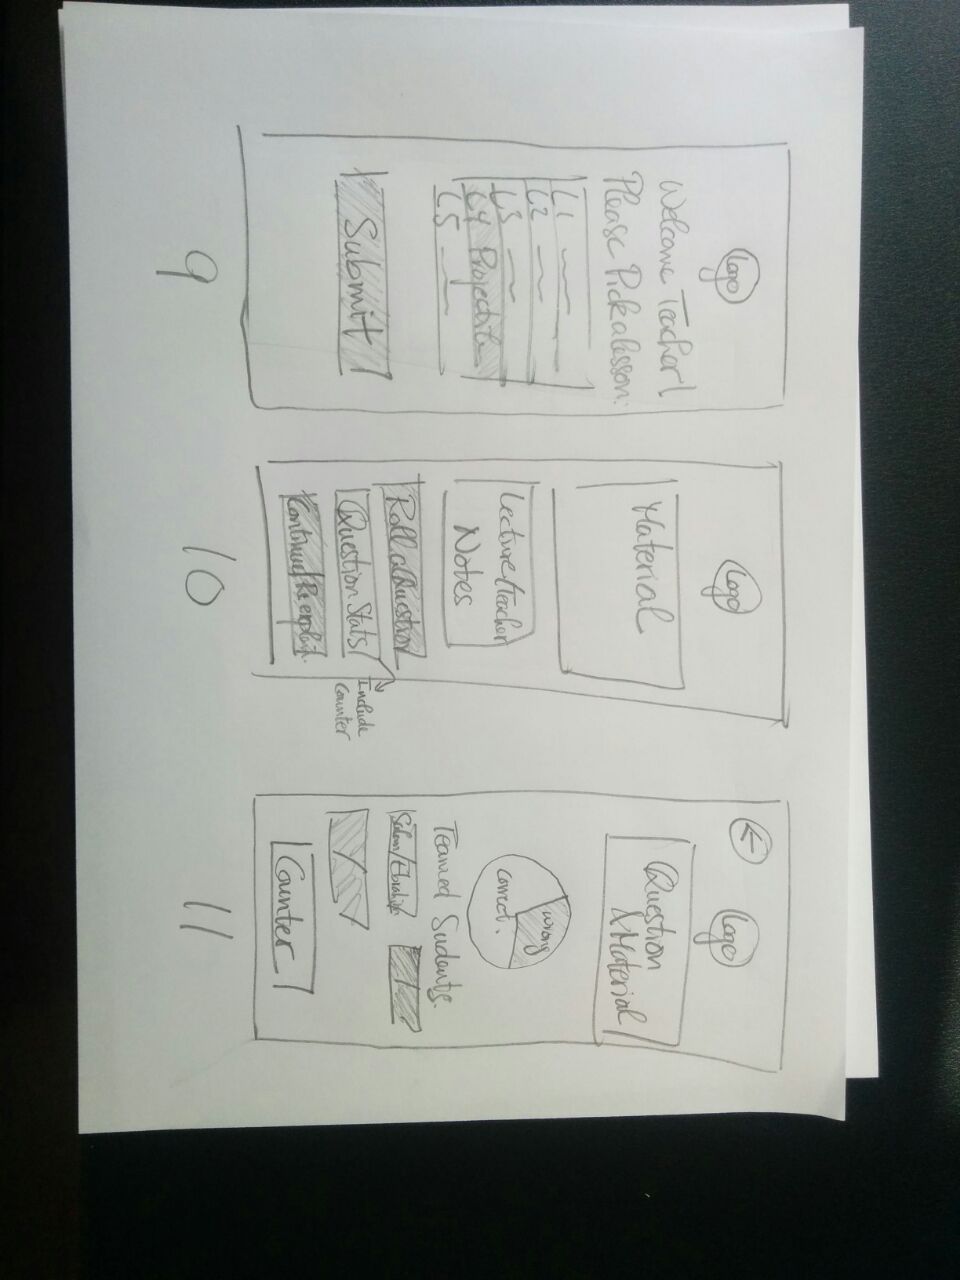 Logo
Welcome Teacher!
Please Pick a lesson:
L1
L2
L3
L4 Projectile
L5
Submit
9
Logo
Material
Lecture/Teacher
Notes
Roll a Question
Question Stats
Include
Counter
Continue/Re explain
10
Logo
Question
& Material
wrong
correct.
Teamed Sudents.
Salem/Ebrahim
Counter
11